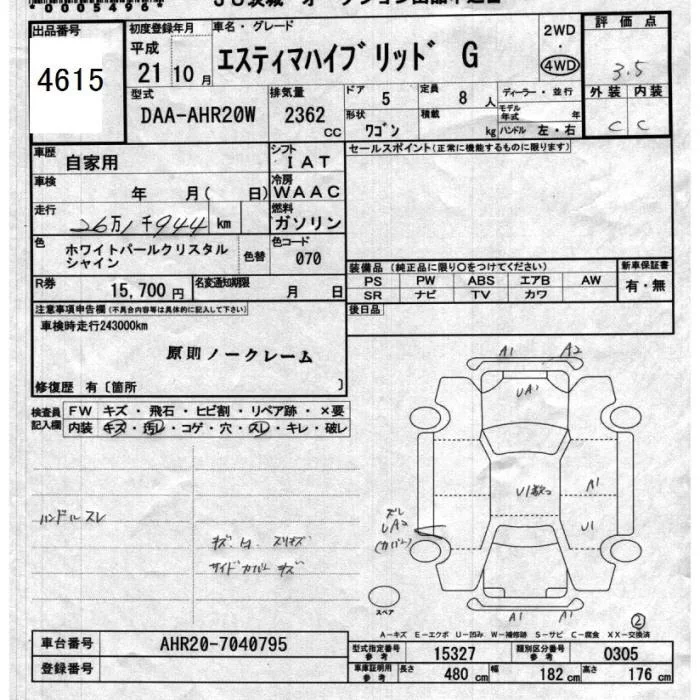 *00054964
出品番号
4615
初度登録年月
平成
21年10月
車名・グレード
エスティマハイブリッド G
2WD
・
4WD
評価点
3.5
外装 内装
C C
型式
DAA-AHR20W
排気量
2362
CC
ドア
5
定員
8人
形状
ワゴン
積載
kg
ディーラー・並行
モデル
年式 年
ハンドル 左・右
車歴
自家用
シフト
IAT
セールスポイント(正常に機能するものに限ります)
車検
年 月( 日)
冷房
WAAC
走行
26万1千944km
燃料
ガソリン
色
ホワイトパールクリスタル
シャイン
色替
色コード
070
装備品 (純正品に限り○をつけてください)
新車保証書
PS PW ABS エアB AW
SR ナビ TV カワ
有・無
R券
15,700円
名変通知期限
月 日
後日品
注意事項申告欄(不具合内容等は具体的に記入して下さい)
車検時走行243000km
原則ノークレーム
修復歴 有〔箇所 〕
検査員
記入欄
FW キズ・飛石・ヒビ割・リペア跡・×要
内装 キズ・汚レ・コゲ・穴・スレ・キレ・破レ
ハンドルスレ
サイドカバーキズ
A1 A2
UA1
A1
U1
UA2
(カバー)
A1 A1
スペア
②
A-キズ E-エクボ U-凹み W-補修跡 S-サビ C-腐食 XX-交換済
車台番号
AHR20-7040795
登録番号
型式指定番号
参考
15327
類別区分番号
参考
0305
車庫証明用
参考
長さ
480 cm
幅
182 cm
高さ
176 cm